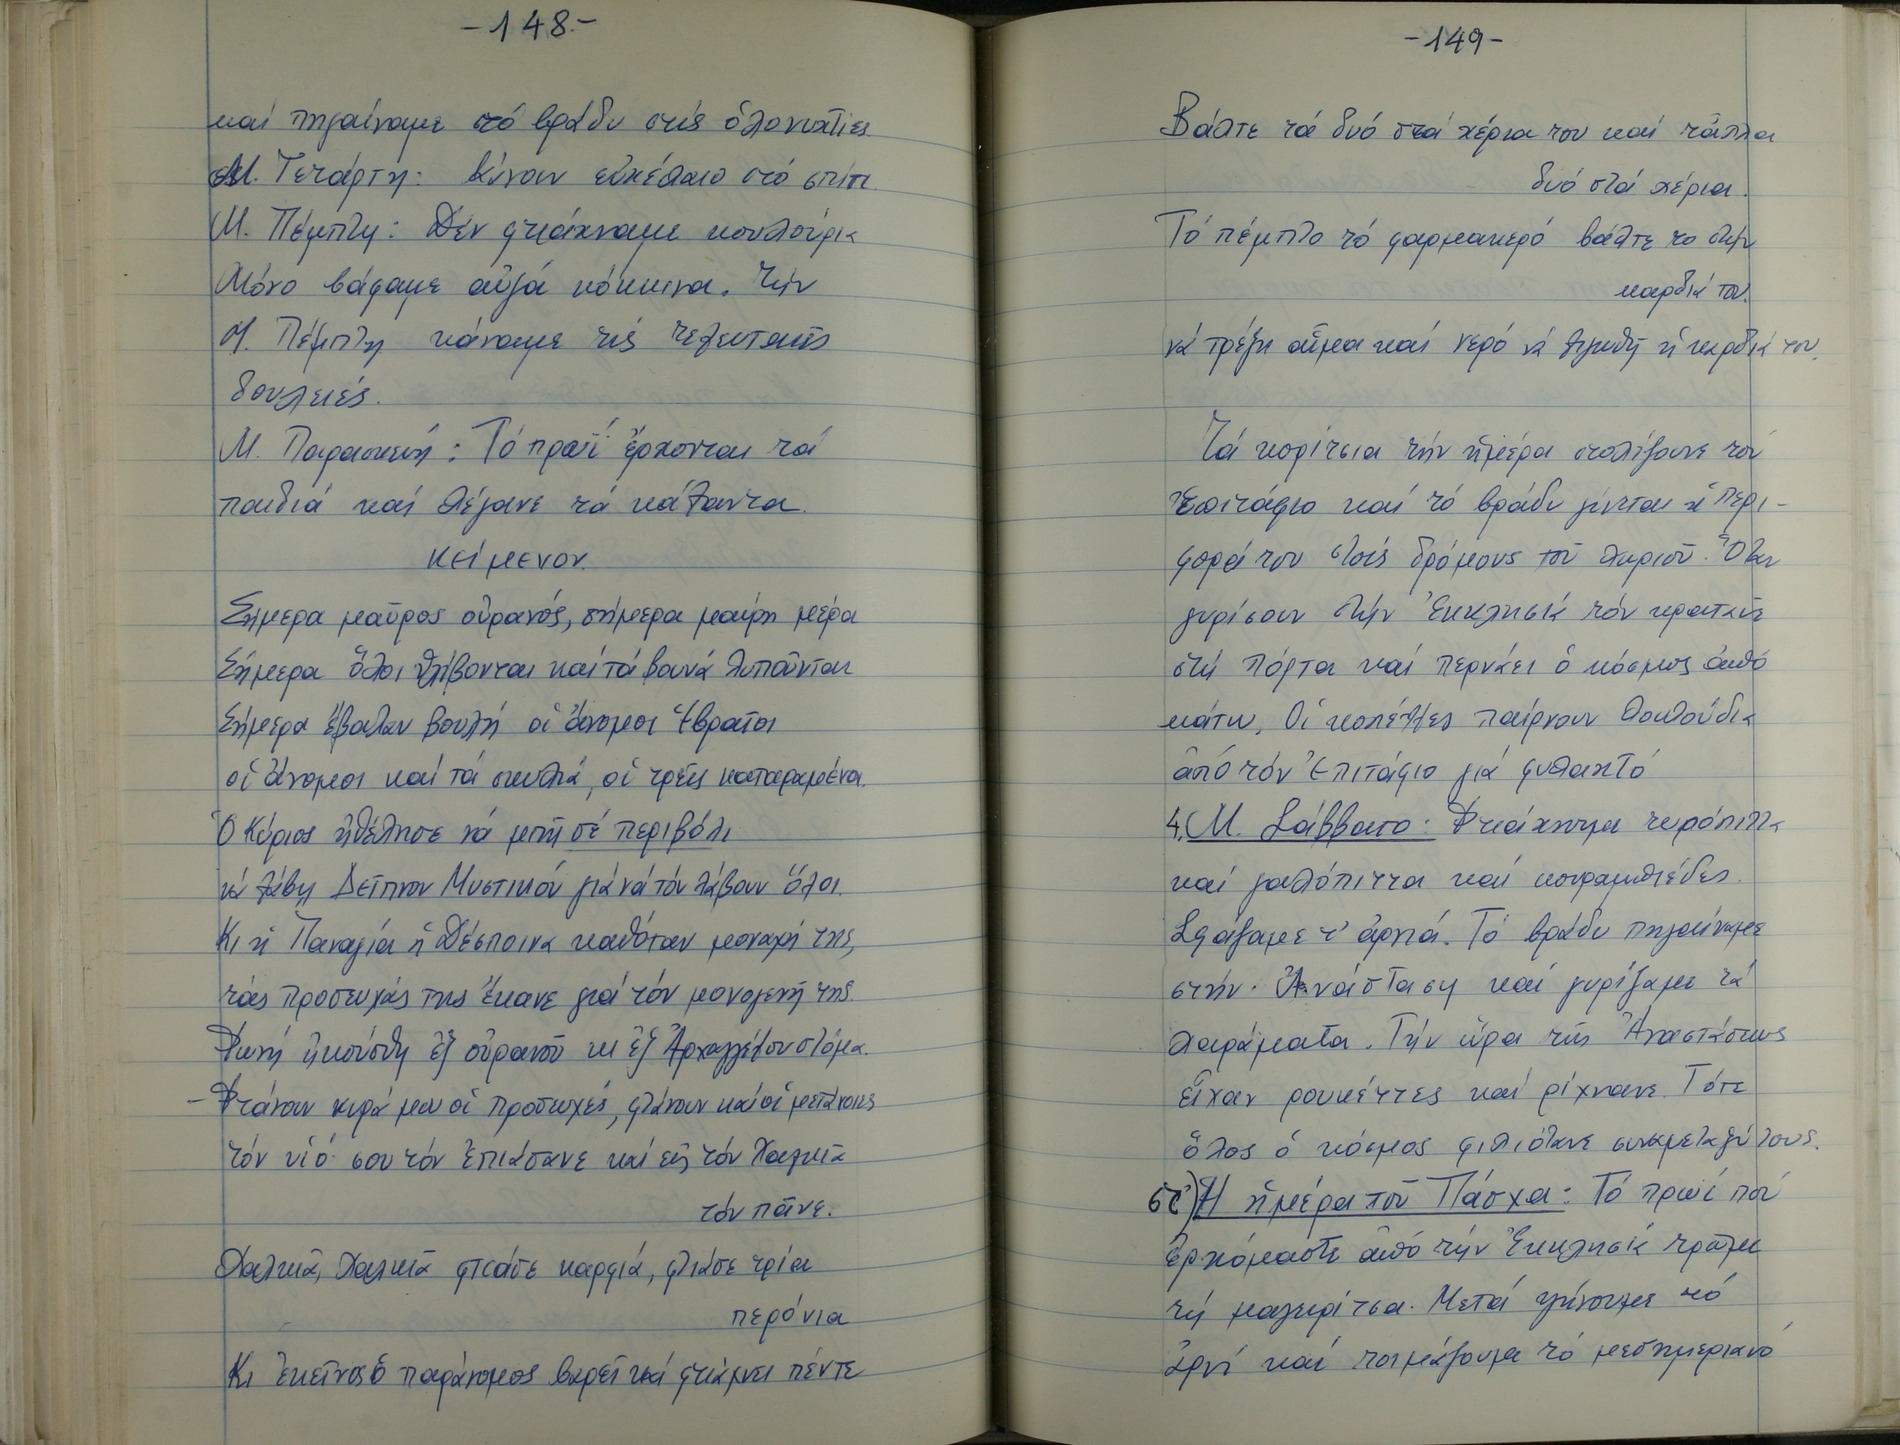 -148-
καί πηγαίναμε τό βράδυ στίς ὁλονυχτίες
Μ. Τετάρτη: Κάναν εὐχέλαιο στό σπίτι.
Μ. Πέμπτη: Δέν φτιάχναμε κουλούρια
Μόνο βάφαμε αὐγά κόκκινα. Τήν
Μ. Πέμπτη κάναμε τίς τελευταῖες
δουλειές.
Μ. Παρασκευή: Τό πρωΐ ἔρχονται τά
παιδιά καί λέγανε τά κάλαντα.
Κείμενον.
Σήμερα μαῦρος οὐρανός, σήμερα μαύρη μέρα
Σήμερα ὅλοι θλίβονται καί τά βουνά λυποῦνται
Σήμερα ἔβαλαν βουλή οἱ ἄνομοι Ἑβραῖοι
οἱ ἄνομοι καί τά σκυλιά, οἱ τρεῖς καταραμένοι.
Ὁ Κύριος ἠθέλησε νά μπῆ σέ περιβόλι
νά λάβη Δεῖπνον Μυστικόν γιά νά τόν λάβουν ὅλοι.
Κι ἡ Παναγία ἡ Δέσποινα καθόταν μοναχή της,
τάς προσευχάς της ἔκανε γιά τόν μονογενή της.
Φωνή ἠκούσθη ἐξ οὐρανοῦ κι ἐξ Ἀρχαγγέλου στόμα.
- Φτάνουν κυρά μου οἱ προσευχές, φτάνουν καί οἱ μετάνοιες
τόν υἱό σου τόν ἐπιάσανε καί εἰς τόν χαλκιᾶ
τόν πᾶνε.
Χαλκιᾶ, χαλκιᾶ φτιάσε καρφιά, φτιάσε τρία
περόνια
Κι ἐκεῖνος ὁ παράνομος βαρεῖ καί φτιάχνει πέντε
-149-
Βάλτε τά δυό στά χέρια του καί τἄλλα
δυό στά χέρια.
Τό πέμπτο τό φαρμακερό βάλτε το στήν
καρδιά του.
νά τρέξη αἷμα καί νερό νά λιγωθῆ ἡ καρδιά του.
Τά κορίτσια τήν ἡμέρα στολίζουνε τόν
Ἐπιτάφιο καί τό βράδυ γίνεται ἡ περι-
φορά του στούς δρόμους τοῦ χωριοῦ. Ὅταν
γυρίσουν στήν Ἐκκλησιά τόν κρατᾶνε
στή πόρτα καί περνάει ὁ κόσμος ἀπό
κάτω. Οἱ κοπέλλες παίρνουν λουλούδια
ἀπό τόν Ἐπιτάφιο γιά φυλαχτό
4. Μ. Σάββατο: Φτιάχναμε τυρόπιττα
καί γαλόπιττα καί κουραμπιέδες.
Σφάζαμε τ' ἀρνιά. Τό βράδυ πηγαίναμε
στήν Ἀνάσταση καί γυρίζαμε τά
χαράματα. Τήν ὥρα τῆς Ἀναστάσεως
εἶχαν ρουκέττες καί ρίχνανε. Τότε
ὅλος ὁ κόσμος φιλιότανε συναμεταξύ τους.
στ') Ἡ ἡμέρα τοῦ Πάσχα: Τό πρωί πού
ἐρχόμαστε ἀπό τήν Ἐκκλησιά τρῶμε
τή μαγειρίτσα. Μετά ψήνουμε τό
ἀρνί καί τοιμάζουμε τό μεσημεριανό